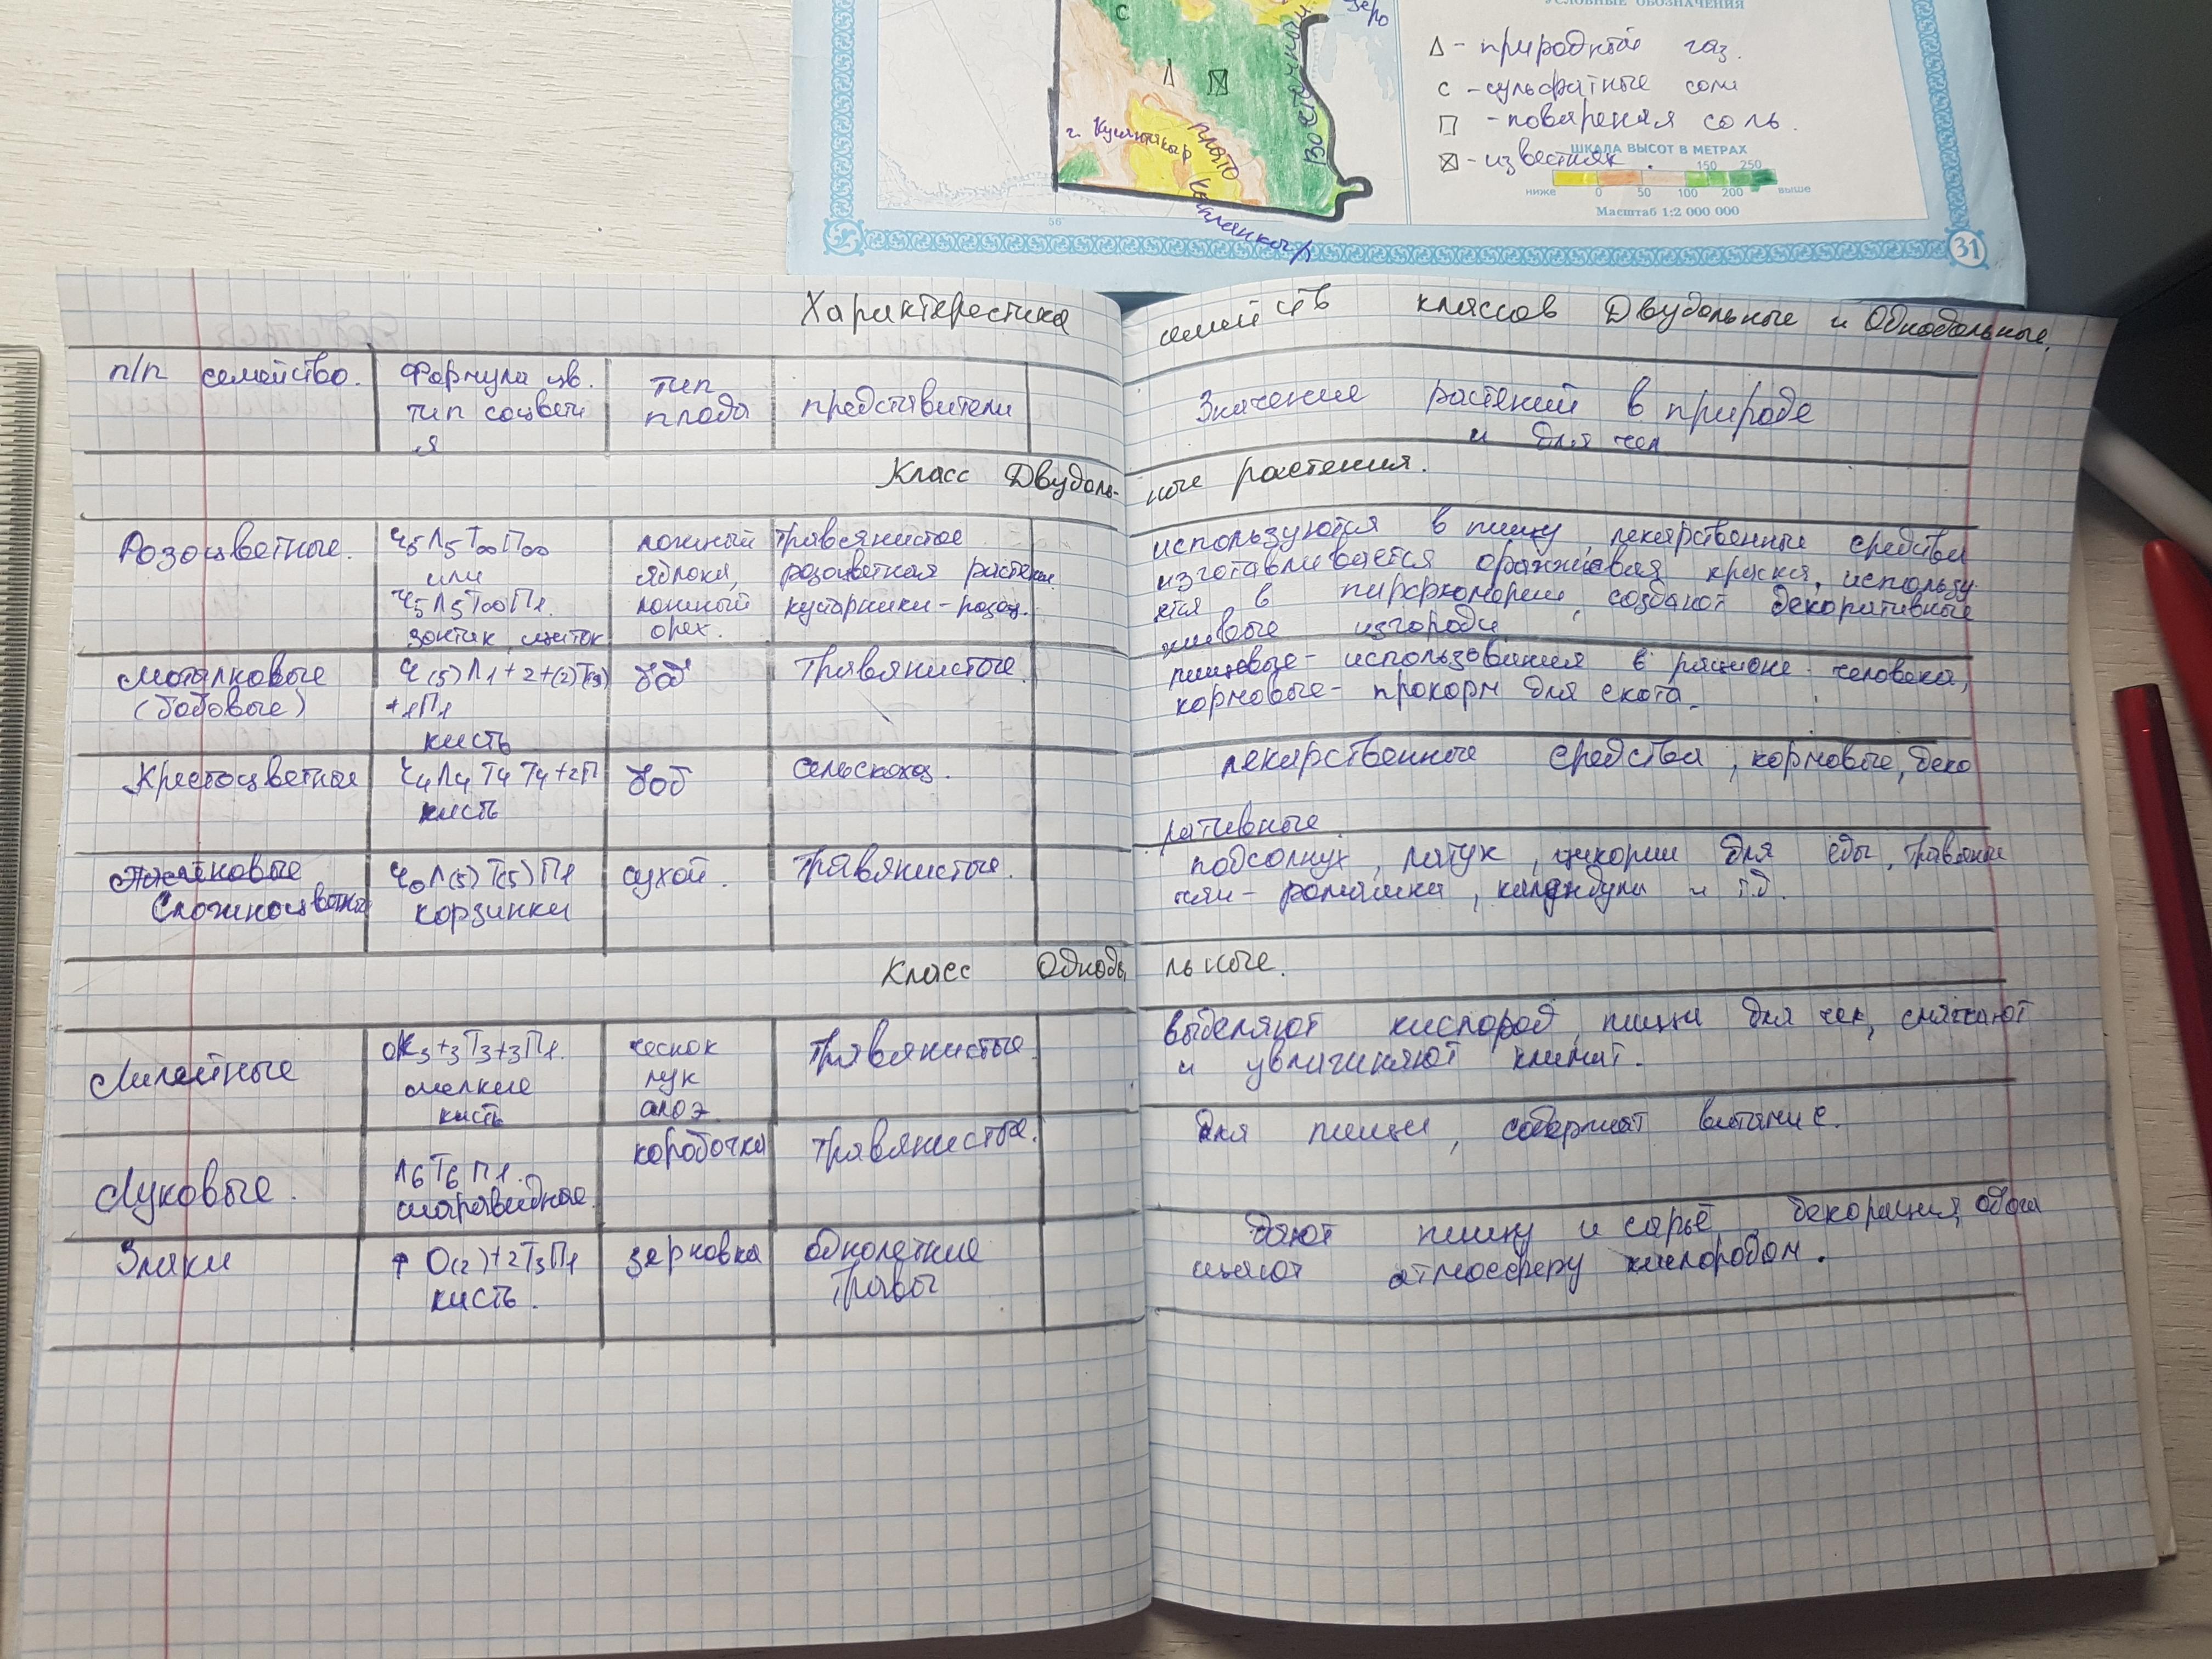 УСЛОВНЫЕ ОБОЗНАЧЕНИЯ
зеро
С
Δ - природный газ.
с - сульфатные соли
□ - повареная соль.
- известняк.
ШКАЛА ВЫСОТ В МЕТРАХ
150 250
ниже 0 50 100 200 выше
Масштаб 1:2 000 000
плато
Капланкыр
56
31
Характерестика семейств классов Двудольные и Однодольные.
п/п семейство.
Формула цв.
тип соцвети
я
тип
плода
представители
Значение растений в природе
и для чел
Класс Двудоль- ные растения.
Розоцветные.
Ч5Л5Т∞П∞
или
Ч5Л5Т∞П1.
зонтик, щиток
ложный
яблока,
ложный
орех.
травянистое
розоцветная растение.
кустарники - розоц.
используются в пищу, лекарственные средства
изготавливается оранжевая краска, использу
ется в парфюмерии, создают декоративные
живые изгороди
Мотылковые
(бобовые)
Ч(5)Л1+2+(2)Т(9)
+1П1
кисть
боб
травянистые.
пищевые - использования в рационе человека,
кормовые - прокорм для скота.
Крестоцветные
Ч4Л4Т4Т4+2П
кисть
боб
сельскохоз.
лекарственные средства, кормовые, деко
ративные
Сложноцветные
Ч0Л(5)Т(5)П1
корзинки
сухой.
травянистые.
подсолнух, латук, цикории для еды,
чаи - ромашка, календула и т.д.
Класс Однодо льные.
Лилейные
ОК3+3Т3+3П1.
мелкие
кисть
чеснок
лук
алоэ
травянистые.
выделяют кислород, пища для чел, смягчают
и увлагиняют климат.
Луковые.
Л6Т6П1.
шаравидные.
коробочка
травянистые.
для пищи, содержат витамин с.
Злаки
↑ О(2)+2Т3П1
кисть.
зерновка
однолетние
травы
дают пищу и сарьё, декорация, обога
щяют атмосферу кислородом.